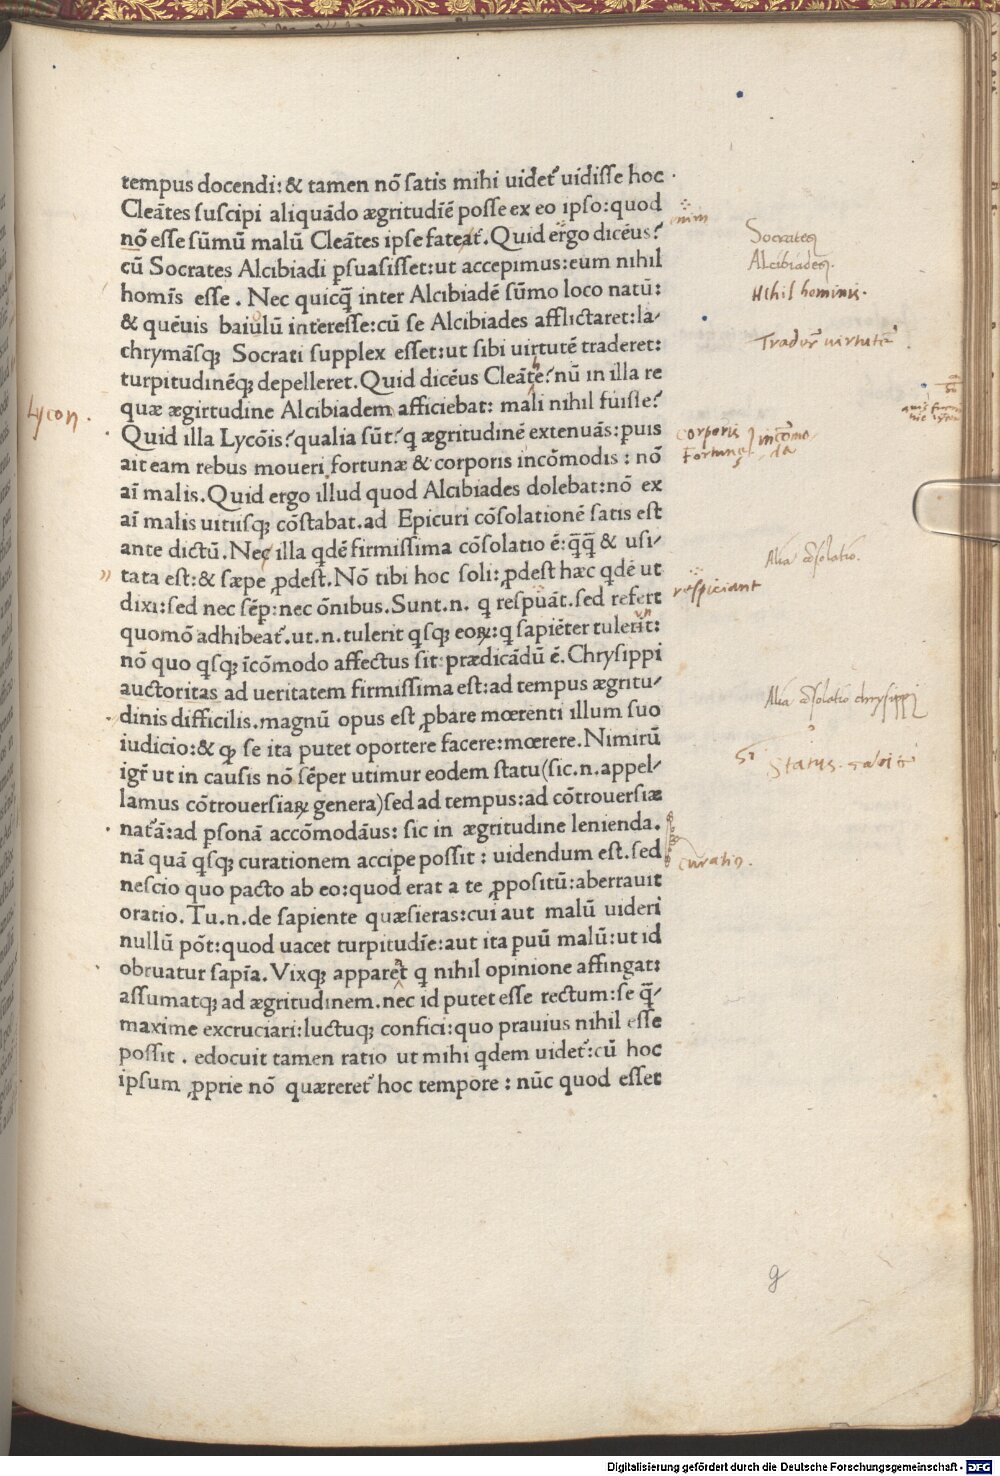 tempus docendi: & tamen nõ satis mihi uidet᷑ uidisse hoc
Cleãtes suscipi aliquãdo ægritudĩẽ posse ex eo ipso: quod
nõ esse sũmũ malũ Cleãtes ipse fateat᷑. Quid ergo dicẽus?
cũ Socrates Alcibiadi ꝑsuasisset: ut accepimus: eum nihil
homĩs esse. Nec quicq̃ inter Alcibiadẽ sũmo loco natũ:
& quẽuis baiulũ interesse: cũ se Alcibiades afflictaret: la-
chrymãsqꝫ Socrati supplex esset: ut sibi uirtutẽ traderet:
turpitudinẽqꝫ depelleret. Quid dicẽus Cleãte? nũ in illa re
quæ ægirtudine Alcibiadem afficiebat: mali nihil fuisse?
Quid illa Lycõis? qualia sũt? q ægritudinẽ extenuãs: puis
ait eam rebus moueri fortunæ & corporis incõmodis: nõ
aĩ malis. Quid ergo illud quod Alcibiades dolebat: nõ ex
aĩ malis uitiisqꝫ cõstabat. ad Epicuri cõsolationẽ satis est
ante dictũ. Nec illa qdẽ firmissima cõsolatio ẽ: q̃q̃ & usi-
tata est: & sæpe ꝓdest. Nõ tibi hoc soli: ꝓdest hæc qdẽ ut
dixi: sed nec sẽp: nec õnibus. Sunt.n. q respuãt. sed refert
quomõ adhibeat᷑. ut.n. tulerit qsqꝫ eoꝝ: q sapiẽter tulerĩt:
nõ quo qsqꝫ ĩcõmodo affectus sit: prædicãdũ ẽ. Chrysippi
auctoritas ad ueritatem firmissima est: ad tempus ægritu-
dinis difficilis. magnũ opus est ꝓbare mœrenti illum suo
iudicio: & ꝙ se ita putet oportere facere: mœrere. Nimirũ
igr̃ ut in causis nõ sẽper utimur eodem statu (sic.n. appel-
lamus cõtrouersiaꝝ genera) sed ad tempus: ad cõtrouersiæ
nat᷑ã: ad ꝑsonã accõmodãus: sic in ægritudine lenienda.
nã quã qsqꝫ curationem accipe possit: uidendum est. sed
nescio quo pacto ab eo: quod erat a te ꝓpositũ: aberrauit
oratio. Tu.n. de sapiente quæsieras: cui aut malũ uideri
nullũ põt: quod uacet turpitudĩe: aut ita puũ malũ: ut id
obruatur sapĩa. Vixqꝫ apparet q nihil opinione affingat:
assumatqꝫ ad ægritudinem. nec id putet esse rectum: se q̃-
maxime excruciari: luctuqꝫ confici: quo prauius nihil esse
possit. edocuit tamen ratio ut mihi qdem uidet᷑: cũ hoc
ipsum ꝓprie nõ quæreret᷑ hoc tempore: nũc quod esset
enim
Socrates
Alcibiades.
Nihil hominis.
Tradere uirtutẽ.
Lycon.
corporis
Fortunę
incõmo-
da
Alia cõsolatio.
respiciant
Alia cõsolatio chrysippi
Status.
curatio.
g
Digitalisierung gefördert durch die Deutsche Forschungsgemeinschaft - DFG